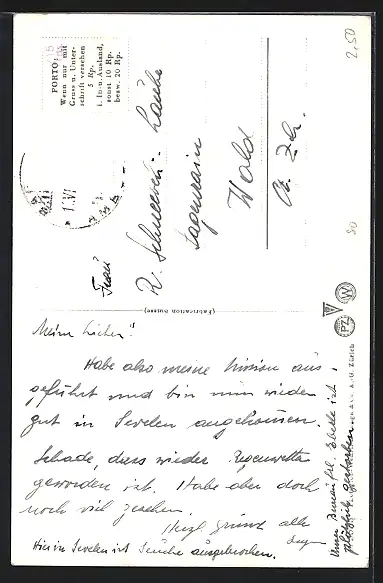 PORTO:
Wenn nur mit
Gruss u. Unter-
schrift versehen
5 Rp.
i. In- u. Ausland,
sonst 10 Rp.
bezw. 20 Rp.
Frau
R. Schneebeli-Läube
Sagenrain
Wald
Ct. Zch.
2,50
50
(Fabrication suisse)
Meine Lieben!
Habe also meine Mission aus
geführt und bin nun wieder
gut in Sevelen angekommen.
Schade, dass wieder Regenwetter
geworden ist. Habe aber doch
noch viel gesehen.
Herzl. Grüsst alle
Hier in Sevelen ist Seuche ausgebrochen.
Unser Frl. Eberle ist
plötzlich gestorben
PZ
W
Zürich